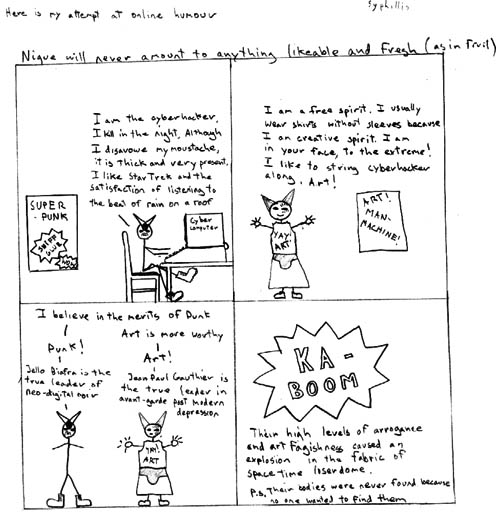 Here is my attempt at online humour
Syphillis
Nique will never amount to anything likeable and Fregh (as in Fruit)
I am the cyberhacker.
I kill in the night. Although
I disavowe my moustache,
it is thick and very present.
I like Star Trek and the
satisfaction of listening to
the beat of rain on a roof
SUPER
-PUNK
SNIFF
GLUE
NOW
Cyber
computer
I am a free spirit. I usually
wear shirts without sleeves because
I an creative spirit. I am
in your face, to the extreme!
I like to string cyberhacker
along. Art!
YAY!
ART
ART!
MAN-
MACHINE!
I believe in the merits of Punk
Punk!
Jello Biafra is the
true leader of
neo-digital noir
Art is more worthy
Art!
Jean Paul Gauthier is
the true leader in
avant-garde post modern
depression
YAY!
ART
KA-
BOOM
Their high levels of arrogance
and art Fagishness caused an
explosion in the fabric of
space time loserdome.
P.S. Their bodies were never found because
no one wanted to find them